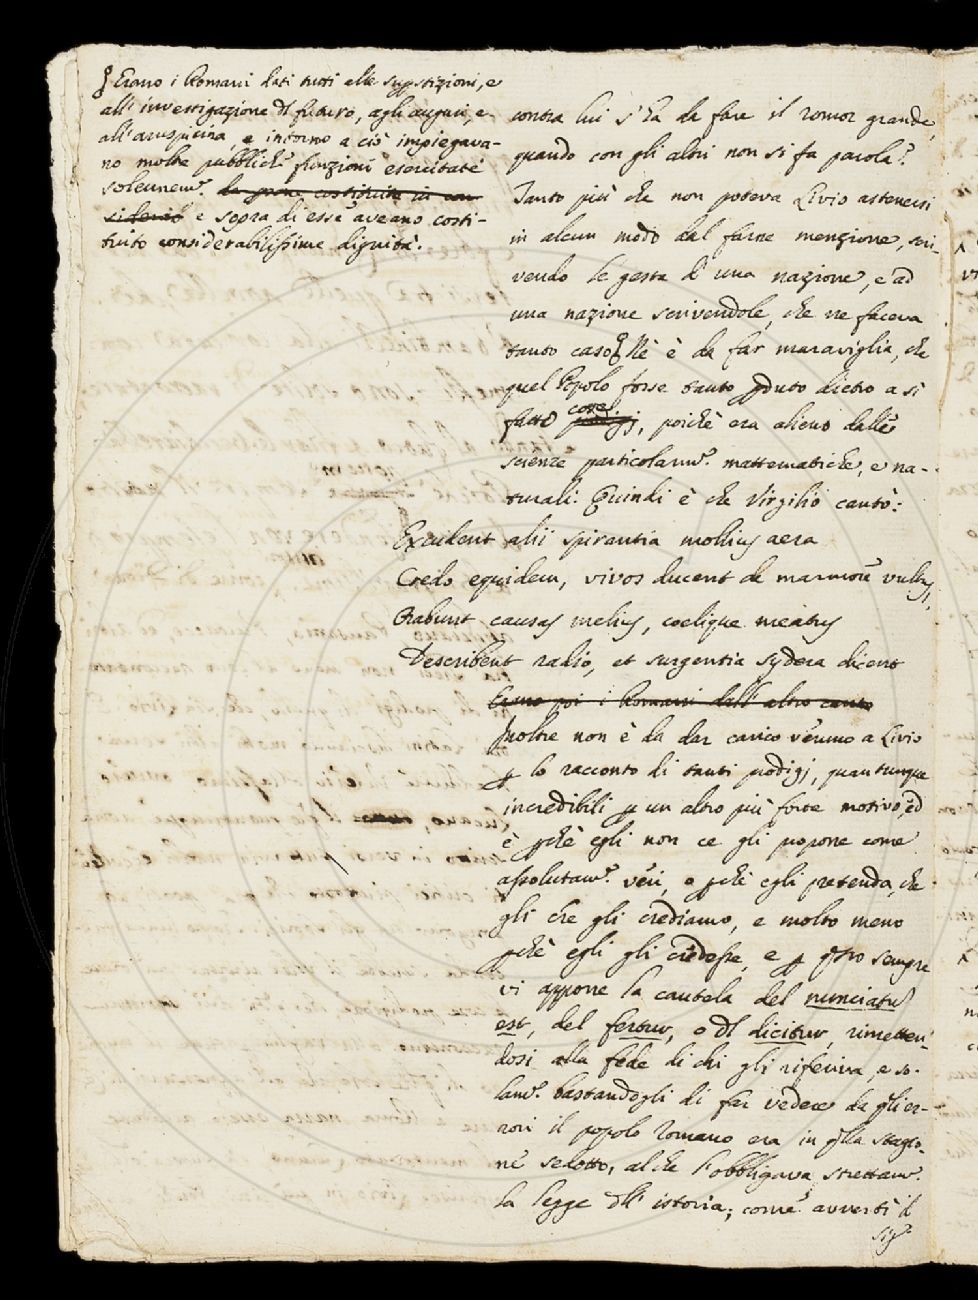 Erano i Romani dati tutti alle supstizioni, e
all' investigazione dl futuro, agli auguri, e
all' aruspicina, e intorno a ciò impiegava-
no molte pubbliche funzioni esercitate
solennemte. la prone costituite in con
siderió e sopra di esse aveano costi-
tuito considerabilissime dignità.
contra lui s' ha da fare il romor grande,
quando con gli altri non si fa parola?
Tanto più che non poteva Livio astenersi
in alcun modo dal farne menzione, scri-
vendo le gesta di una nazione, e ad
una nazione scrivendole, che ne faceva
tanto caso. Nè è da far maraviglia, che
quel Popolo fosse tanto pduto dietro a sì
cose
fatte prodigj, poichè era alieno dalle
scienze particolarmte. mattematiche, e na-
turali. Quindi è che Virgilio cantò:
Excudent alii spirantia mollius aera
Credo equidem, vivos ducent de marmore vultus,
Orabunt causas melius, coelique meatus
Describent radio, et surgentia sydera dicent
Erano poi i Romani dall' altro canto
Inoltre non è da dar carico veruno a Livio
p lo racconto di tanti prodigj, quantunque
incredibili p un altro più forte motivo, ed
è pchè egli non ce gli propone come
assolutamte. veri, o pchè egli pretenda, che
gli che gli crediamo, e molto meno
pchè egli gli credesse, e p qsto sempre
vi appone la cautela del nunciatum
est, del fertur, o dl dicitur, rimetten-
dosi alla fede di chi gli riferiva, e so-
lamte. bastandogli di far vedere da qli er-
rori il popolo Romano era in qlla stagio-
ne sedotto, al che l'obbligava strettamte.
la legge dll' istoria; come avvertì il
Sigr